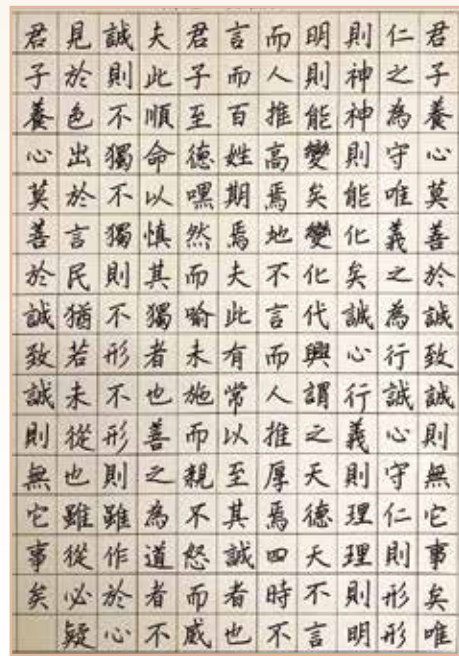 君子養心莫善於誠致誠則無它事矣唯
仁之為守唯義之為行誠心守仁則形形
則神神則能化矣誠心行義則理理則明
明則能變矣變化代興謂之天德天不言
而人推高焉地不言而人推厚焉四時不
言而百姓期焉夫此有常以至其誠者也
君子至德嘿然而喻未施而親不怒而威
夫此順命以慎其獨者也善之為道者不
誠則不獨不獨則不形不形則雖作於心
見於色出於言民猶若未從也雖從必疑
君子養心莫善於誠致誠則無它事矣